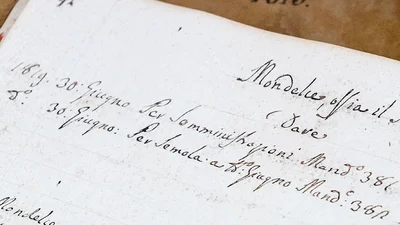 Mondelce ossia il
Dare
1819. 30: Giugno Per Somministrazioni Mand.º 386
d.º 30: Giugno: Per Semola a tt.º Giugno Mand.º 386
Mondelce